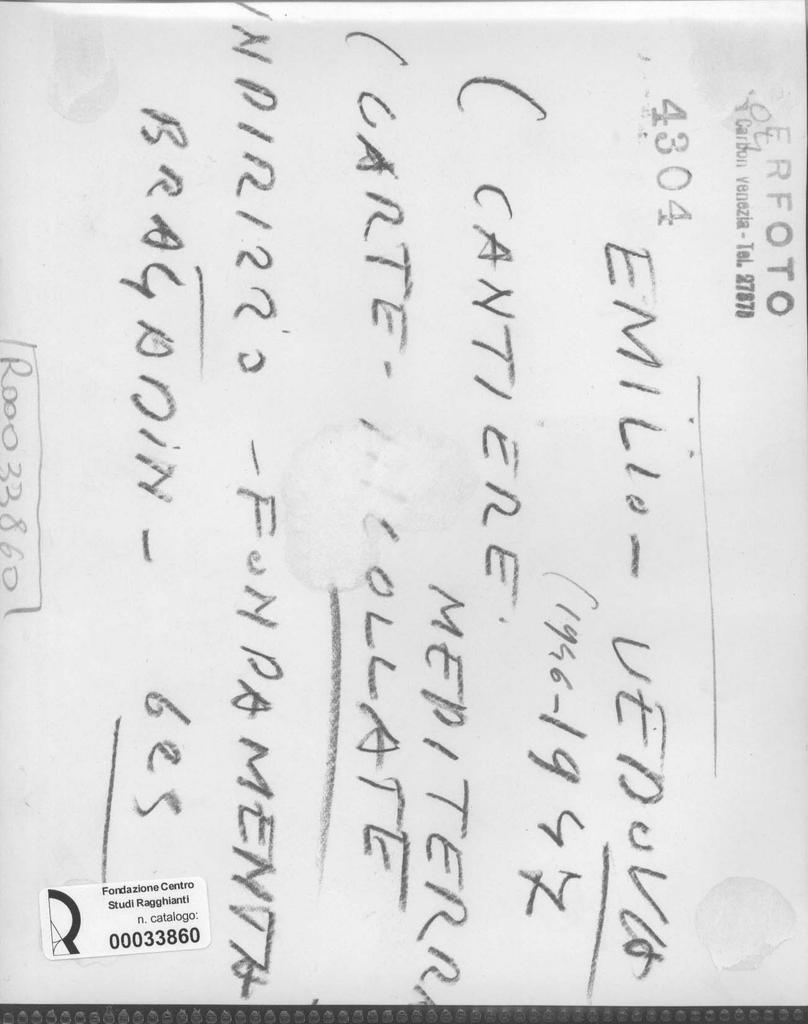 ERFOTO
Carbon venezia - Tel. 27878
4304
EMILIO - VEDOVA
(1946-1947
( CANTIERE.
MEDITERR
( CARTE - INCOLLATE
NDIRIZZO - FONDAMENTA
BRAGADIN - 625
R00033860
Fondazione Centro
Studi Ragghianti
n. catalogo:
00033860